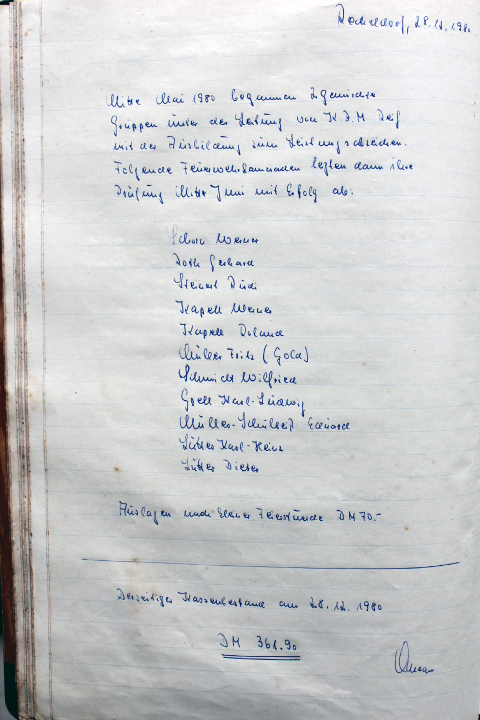 28.12.1980
Mitte Mai 1980 begannen
Gruppen unter der Leitung von K B M
mit der Ausbildung zum Leistungsabzeichen.
Folgende Feuerwehrkameraden legten dann ihre
Prüfung Mitte Juni mit Erfolg ab:
Schorn Werner
Roth Gerhard
Steinert Rudi
Kapell Werner
Kapell Roland
Müller Fritz (Gold)
Schmidt Wilfried
Groll Karl-Ludwig
Müller-Schulteiß Eduard
Lutter Karl-Heinz
Lutter Dieter
Auslagen und kleine Feierstunde DM 70.-
Derzeitiger Kassenbestand am 28.12.1980
DM 361.90